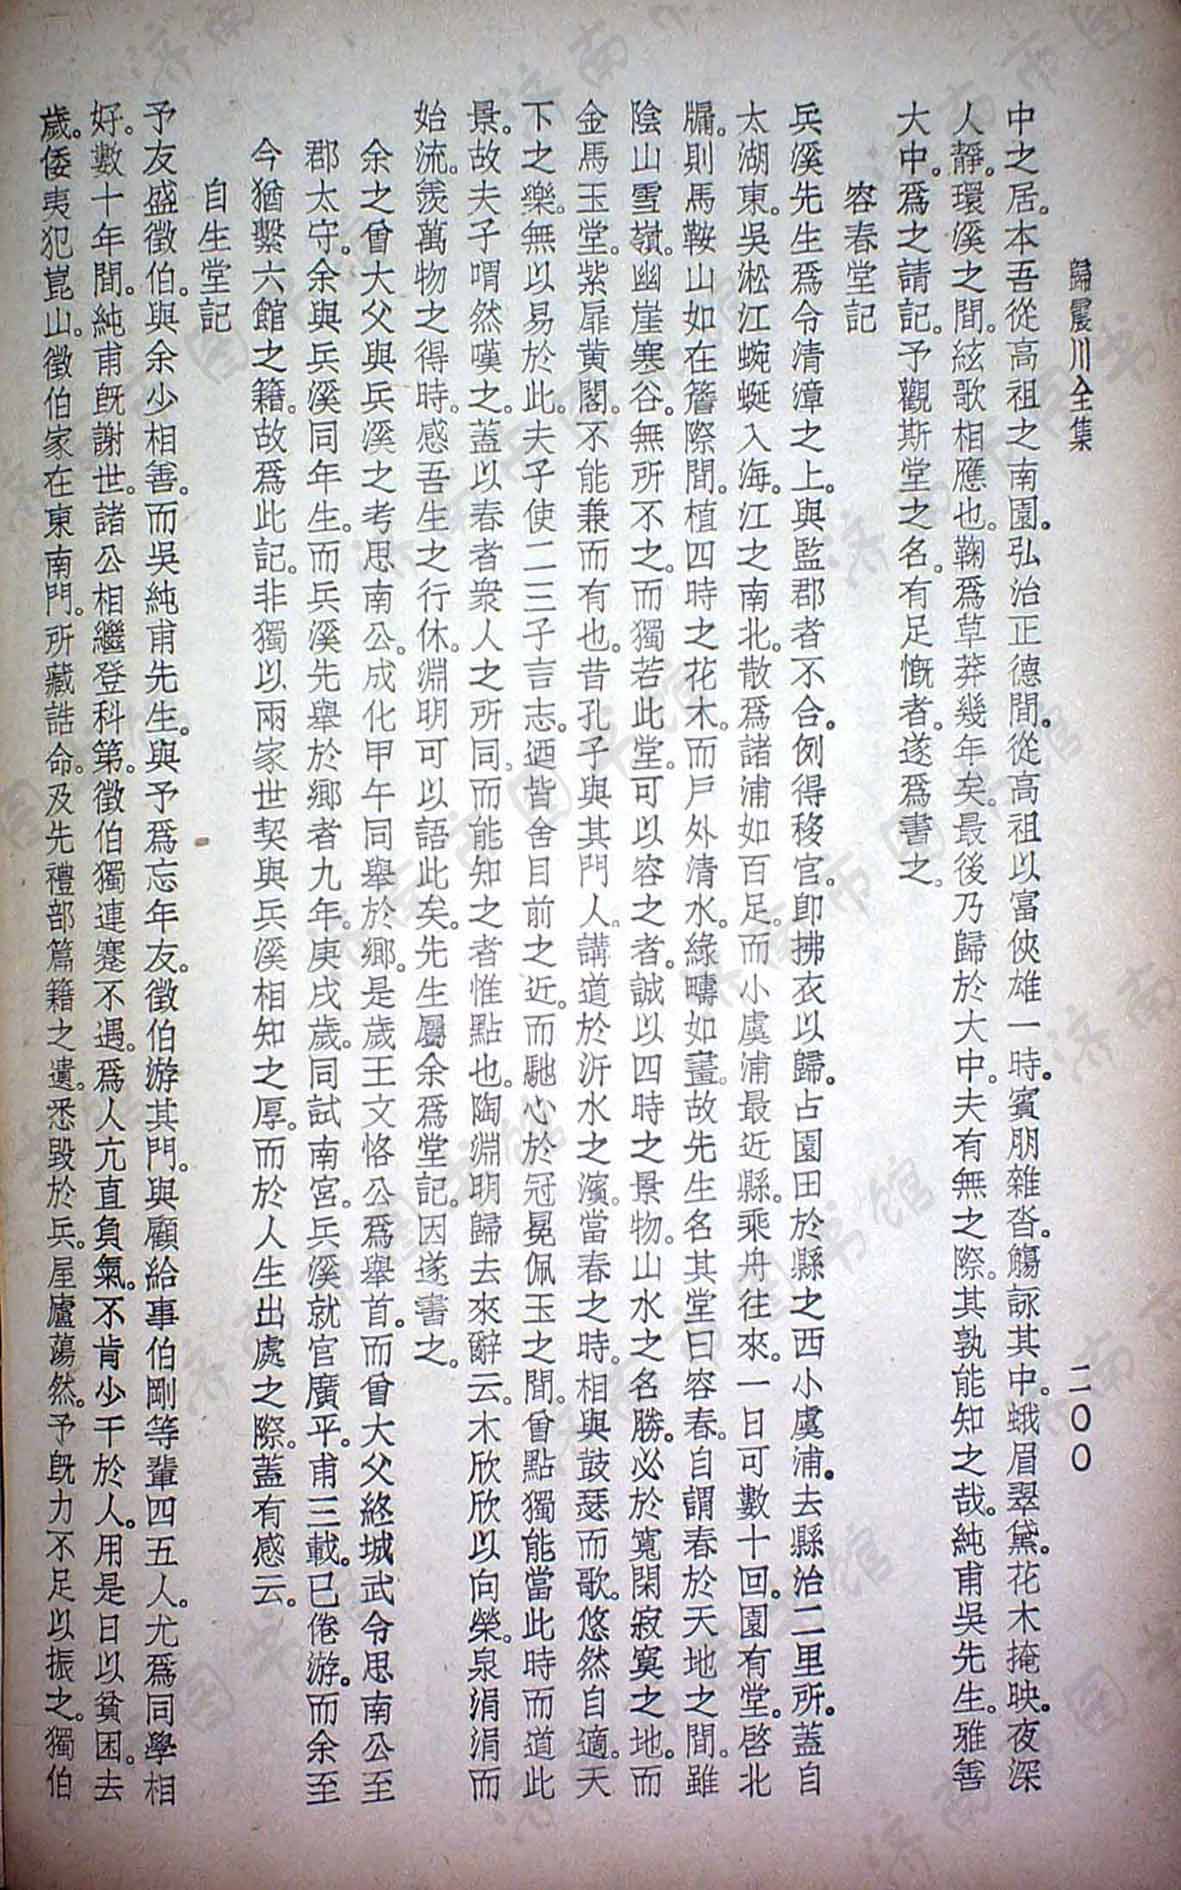 歸震川全集
二〇〇
中之居。本吾從高祖之南園。弘治正德間。從高祖以富俠雄一時。賓朋雜沓。觴詠其中。蛾眉翠黛。花木掩映。夜深
人靜。環溪之間。絃歌相應也。鞠爲草莽幾年矣。最後乃歸於大中。夫有無之際。其孰能知之哉。純甫吳先生。雅善
大中。爲之請記。予觀斯堂之名。有足慨者。遂爲書之。
容春堂記
兵溪先生爲令清漳之上。與監郡者不合。例得移官。卽拂衣以歸。占園田於縣之西小虞浦。去縣治二里所。蓋自
太湖東。吳淞江蜿蜒入海。江之南北。散爲諸浦如百足。而小虞浦最近縣。乘舟往來。一日可數十回。園有堂。啓北
牖。則馬鞍山如在簷際間。植四時之花木。而戶外清水。綠疇如畫。故先生名其堂曰容春。自謂春於天地之間。雖
陰山雪嶺。幽崖寒谷。無所不之。而獨若此堂。可以容之者。誠以四時之景物。山水之名勝。必於寬閑寂寞之地。而
金馬玉堂。紫扉黄閣。不能兼而有也。昔孔子與其門人。講道於沂水之濱。當春之時。相與鼓瑟而歌。悠然自適。天
下之樂。無以易於此。夫子使二三子言志。迺皆舍目前之近。而馳心於冠冕佩玉之間。曾點獨能當此時而道此
景。故夫子喟然嘆之。蓋以春者衆人之所同。而能知之者惟點也。陶淵明歸去來辭云。木欣欣以向榮。泉涓涓而
始流。羨萬物之得時。感吾生之行休。淵明可以語此矣。先生屬余爲堂記。因遂書之。
余之曾大父與兵溪之考思南公。成化甲午同舉於鄉。是歲王文恪公爲舉首。而曾大父終城武令思南公至
郡太守。余與兵溪同年生。而兵溪先舉於鄉者九年。庚戌歲。同試南宮。兵溪就官廣平。甫三載。已倦游。而余至
今猶繫六館之籍。故爲此記。非獨以兩家世契與兵溪相知之厚。而於人生出處之際。蓋有感云。
自生堂記
予友盛徵伯。與余少相善。而吳純甫先生。與予爲忘年友。徵伯游其門。與顧給事伯剛等輩四五人。尤爲同學相
好。數十年間。純甫旣謝世。諸公相繼登科第。徵伯獨連蹇不遇。爲人亢直負氣。不肯少干於人。用是日以貧困。去
歲。倭夷犯崑山。徵伯家在東南門。所藏誥命。及先禮部篇籍之遺。悉毀於兵。屋廬蕩然。予旣力不足以振之。獨伯